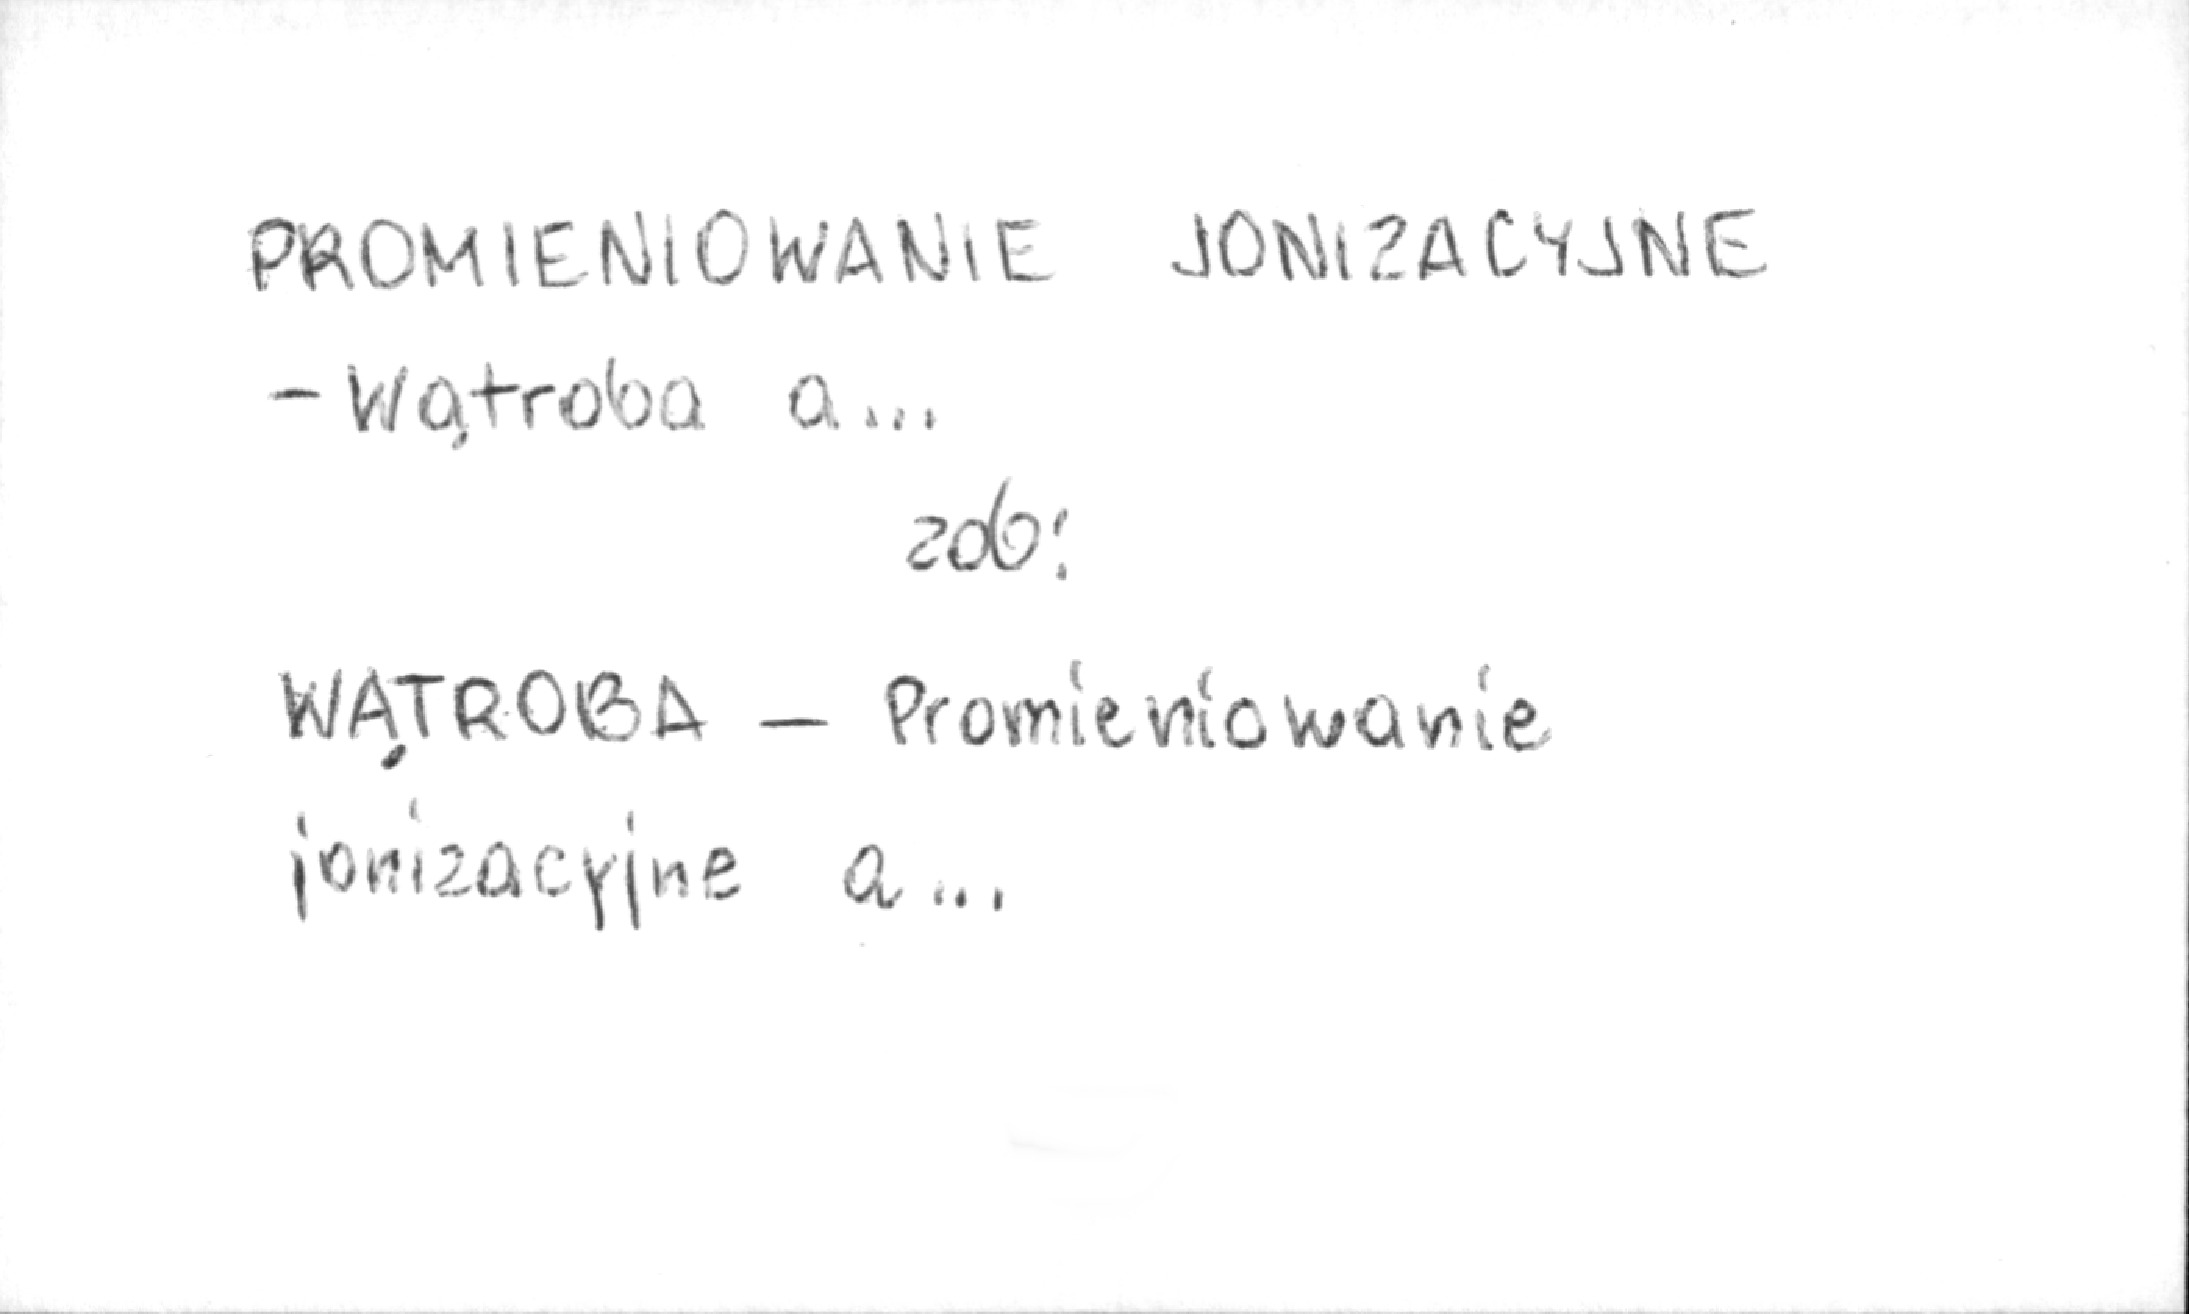 PROMIENIOWANIE JONIZACYJNE
- Wątroba a...
zob:
WĄTROBA - Promieniowanie
jonizacyjne a...